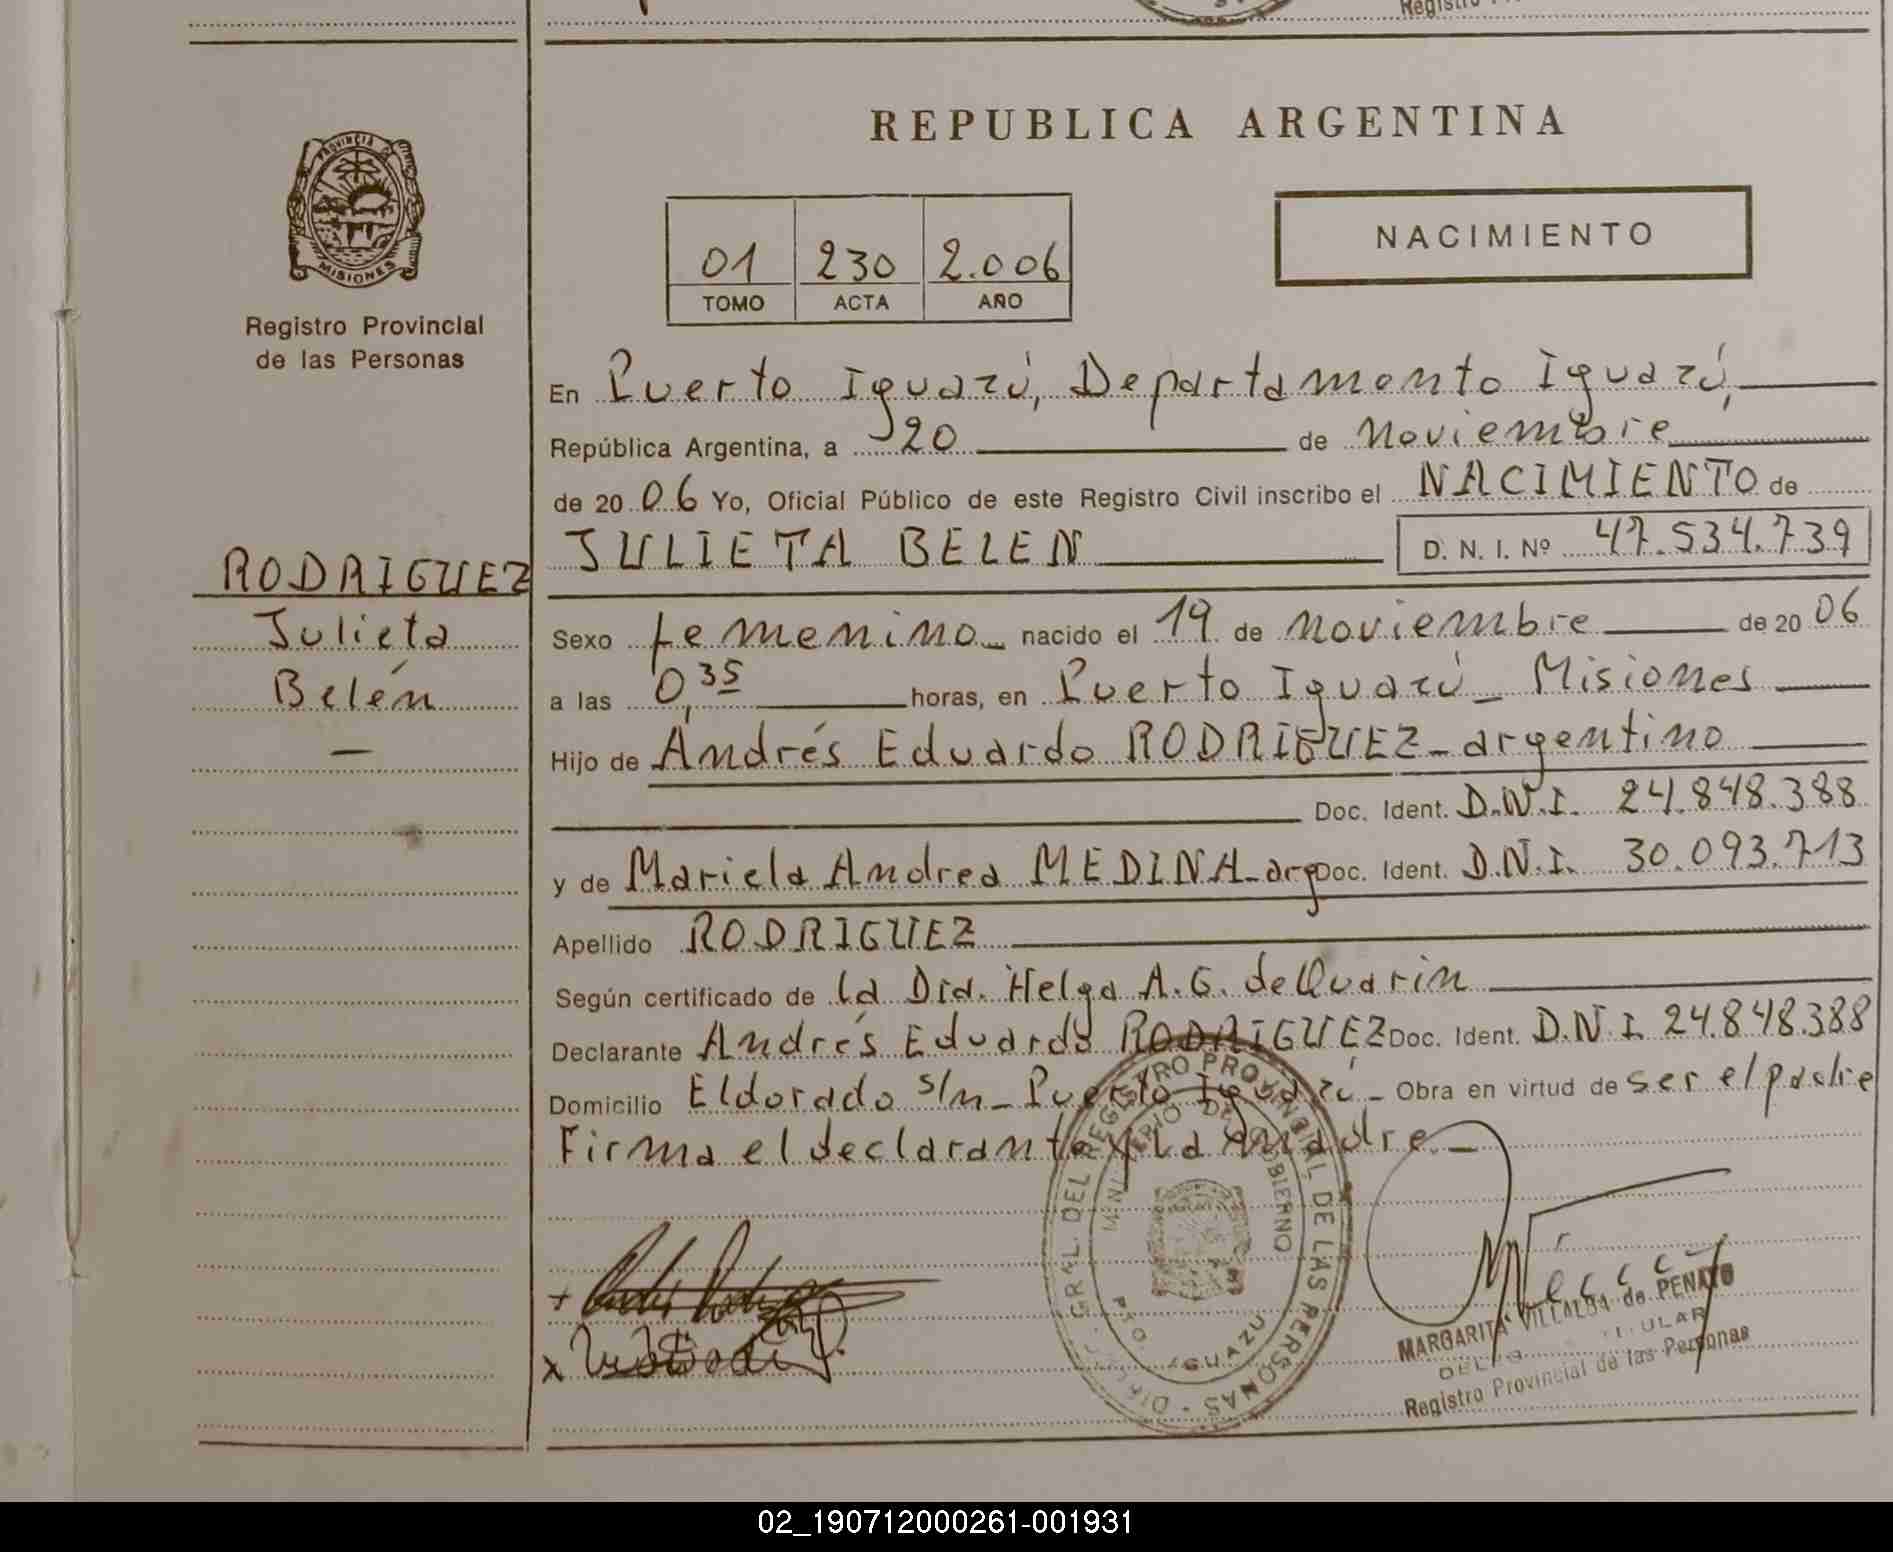 Registro
REPUBLICA ARGENTINA
PROVINCIA DE
MISIONES
Registro Provincial
de las Personas
01 230 2.006
TOMO ACTA AÑO
NACIMIENTO
En Puerto Iguazú, Departamento Iguazú,
República Argentina, a 20 de noviembre
de 2006 Yo, Oficial Público de este Registro Civil inscribo el NACIMIENTO de
JULIETA BELEN D. N. I. Nº 47.534.739
RODRIGUEZ
Julieta
Belén
Sexo femenino nacido el 19 de noviembre de 2006
a las 0,35 horas, en Puerto Iguazú - Misiones
Hijo de Andrés Eduardo RODRIGUEZ - argentino
Doc. Ident. D.N.I. 24.848.388
y de Mariela Andrea MEDINA - arg Doc. Ident. D.N.I. 30.093.713
Apellido RODRIGUEZ
Según certificado de la Dra. Helga A. G. de Quarin
Declarante Andrés Eduardo RODRIGUEZ Doc. Ident. D.N.I. 24.848.388
Domicilio Eldorado s/n - Puerto Iguazú - Obra en virtud de ser el padre
Firma el declarante y la madre. -
GRAL. DEL REGISTRO PROVINCIAL DE LAS PERSONAS
MINISTERIO DE GOBIERNO
PTO. IGUAZU
MARGARITA VILLALBA de PENAYO
Registro Provincial de las Personas
02_190712000261-001931